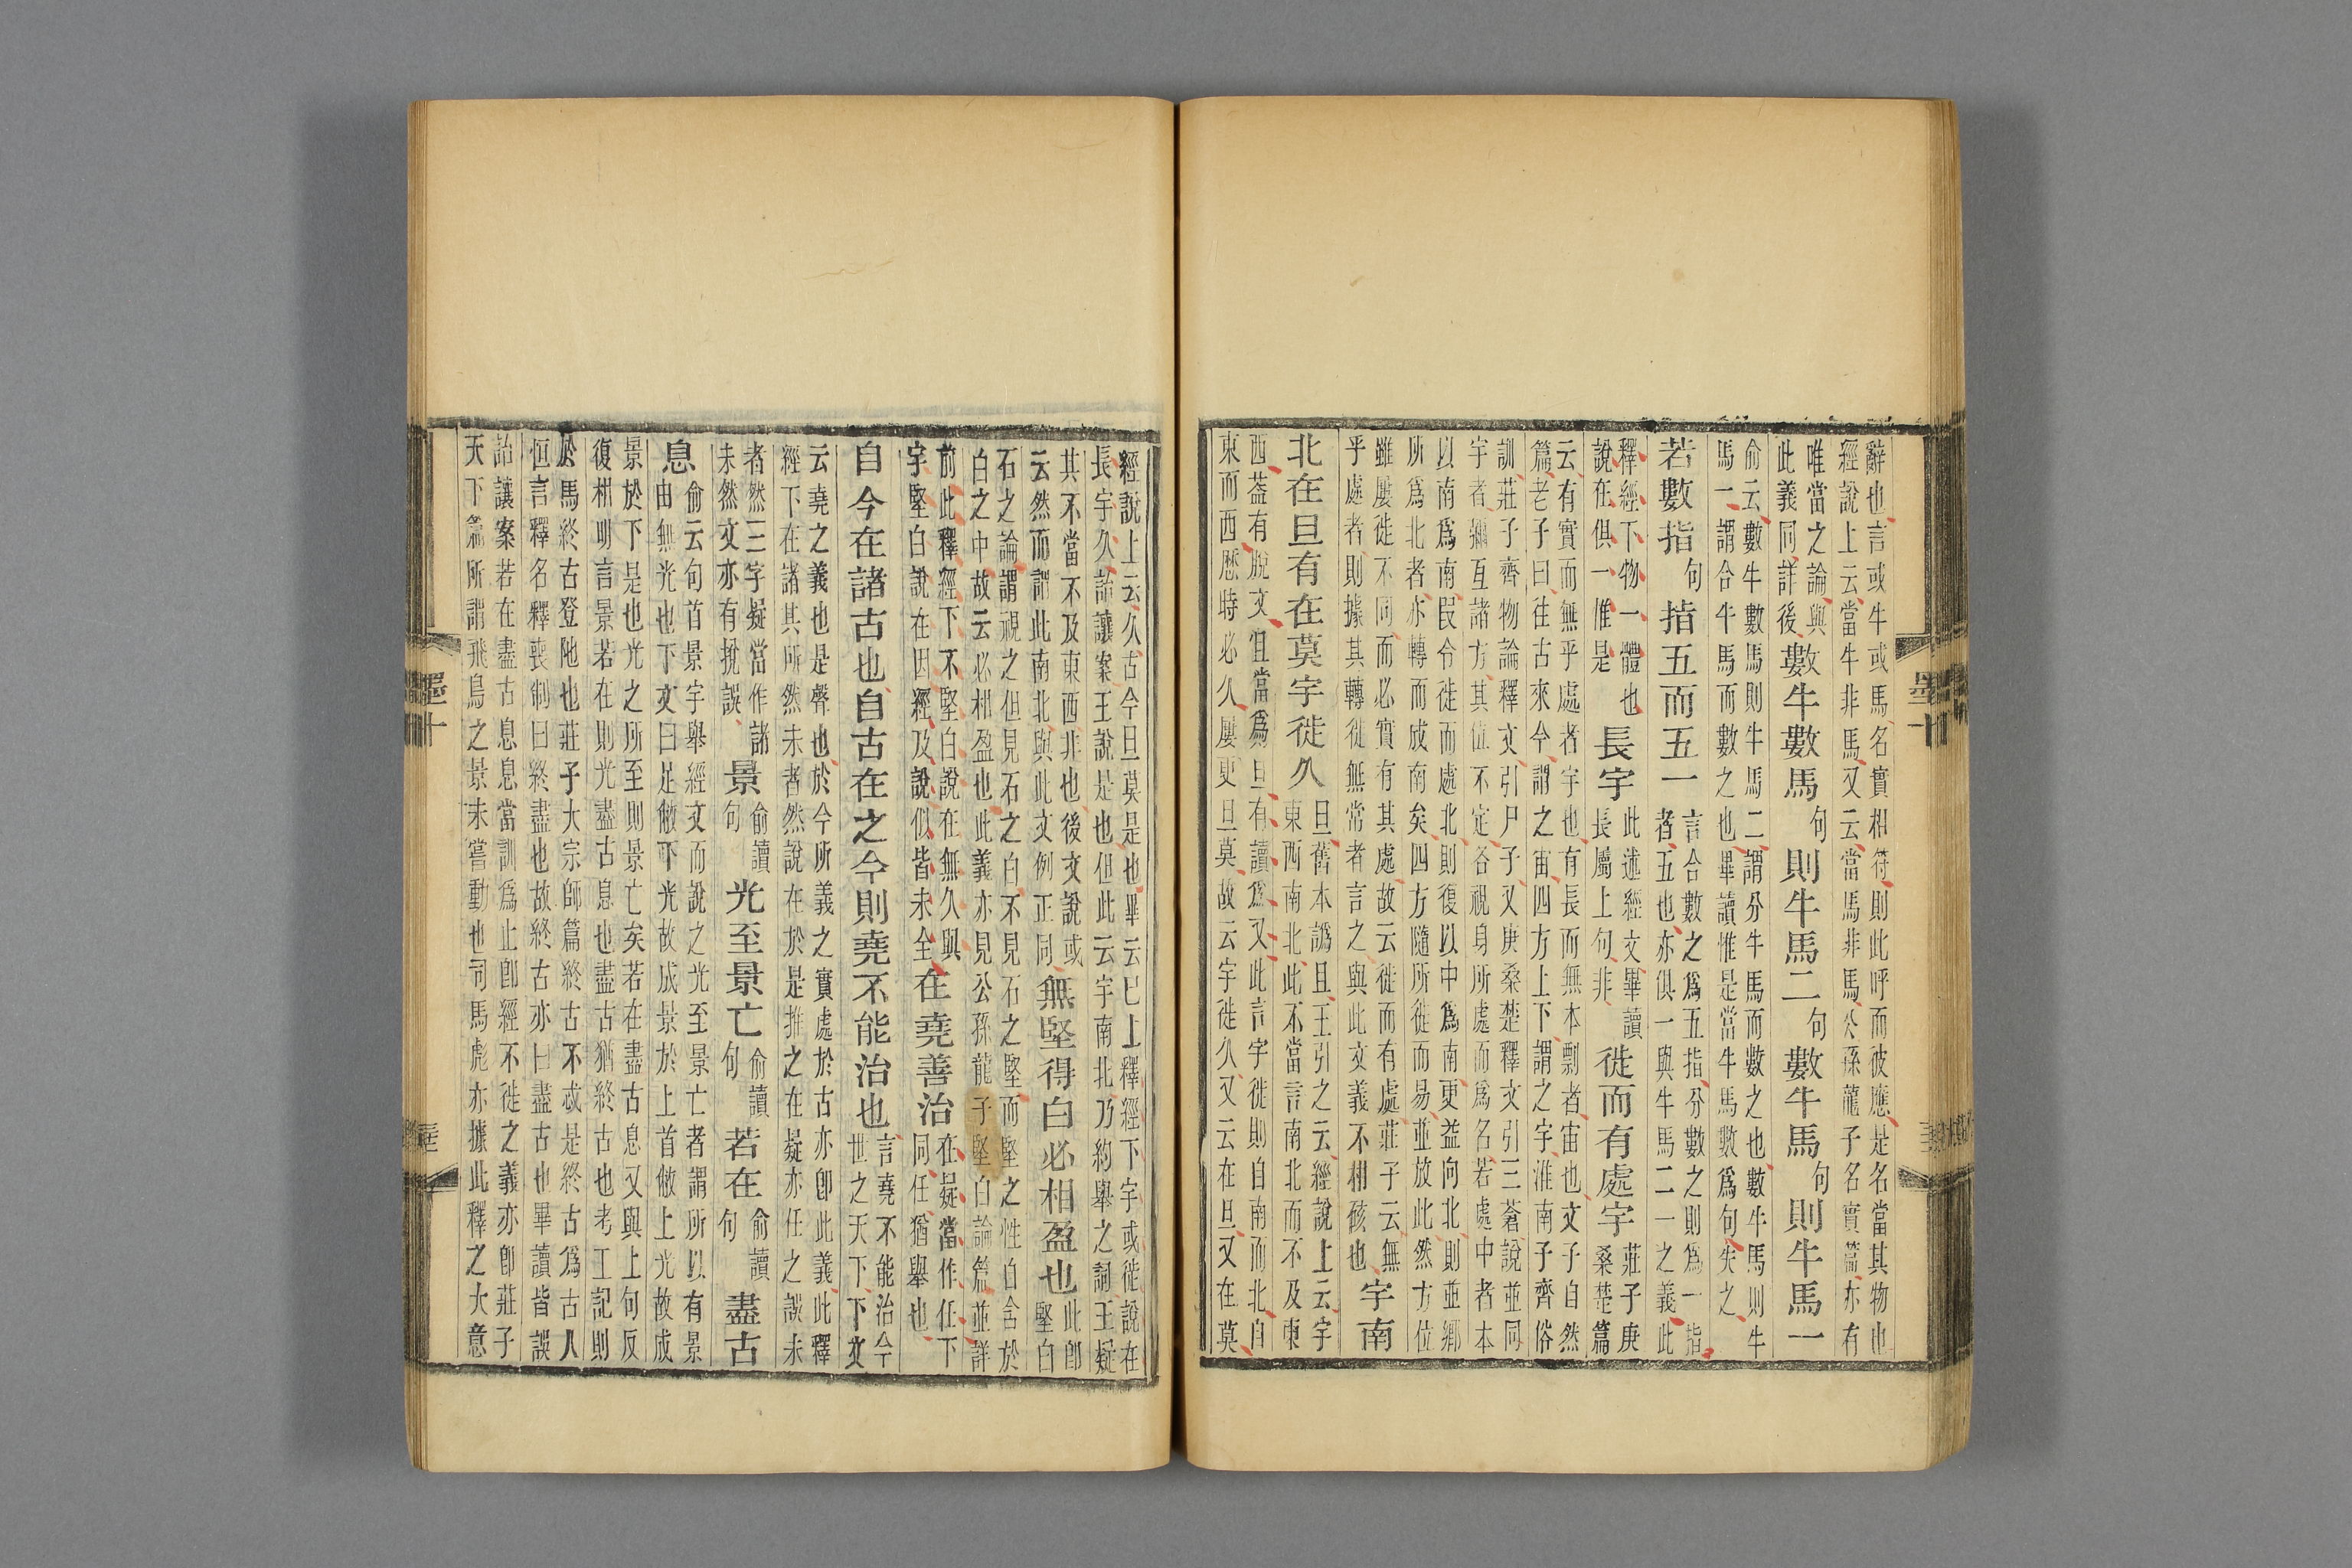 辭也言或牛或馬名實相符則此呼而彼應是名當其物也
經說上云當牛非馬又云當馬非馬公孫龍子名實篇亦有
唯當之論與
此義同詳後
數牛數馬句則牛馬二句數牛馬句則牛馬一
俞云數牛數馬則牛馬二謂分牛馬而數之也數牛馬則牛
馬一謂合牛馬而數之也畢讀惟是當牛馬數爲句失之
若數指句指五而五一
言合數之爲五指分數之則爲一指
者五也亦俱一與牛馬二一之義此
釋經下物一體也
說在俱一惟是
長宇
此述經文畢讀
長屬上句非
徙而有處宇
莊子庚
桑楚篇
云有實而無乎處者宇也有長而無本剽者宙也文子自然
篇老子曰往古來今謂之宙四方上下謂之宇淮南子齊俗
訓莊子齊物論釋文引尸子又庚桑楚釋文引三蒼說並同
宇者彌亙諸方其位不定各視身所處而爲名若處中者本
以南爲南民令徙而處北則復以中爲南更益向北則並鄉
所爲北者亦轉而成南矣四方隨所徙而易並放此然方位
雖屢徙不同而必實有其處故云徙而有處莊子云無
乎處者則據其轉徙無常者言之與此文義不相硋也
宇南
北在旦有在莫宇徙久
旦舊本譌且王引之云經說上云宇
東西南北此不當言南北而不及東
西葢有脫文且當爲旦有讀爲又此言宇徙則自南而北自
東而西歷時必久屢更旦莫故云宇徙久又云在旦又在莫
經說上云久古今旦莫是也畢云已上釋經下宇或徙說在
長宇久詒讓案王說是也但此云宇南北乃約舉之詞王疑
其不當不及東西非也後文說或
云然而謂此南北與此文例正同
無堅得白必相盈也
此卽
堅白
石之論謂視之但見石之白不見石之堅而堅之性白含於
白之中故云必相盈也此義亦見公孫龍子堅白論篇並詳
前此釋經下不堅白說在無久與
宇堅白說在因經及說似皆未全
在堯善治
在疑當作任下
同任猶舉也
自今在諸古也自古在之今則堯不能治也
言堯不能治今
世之天下下文
云堯之義也是聲也於今所義之實處於古亦卽此義此釋
經下在諸其所然未者然說在於是推之在疑亦任之誤未
者然三字疑當作諸
未然文亦有挩誤
景俞讀句光至景亡俞讀句若在俞讀句盡古
息
俞云句首景字舉經文而說之光至景亡者謂所以有景
由無光也下文曰足敝下光故成景於上首敝上光故成
景於下是也光之所至則景亡矣若在盡古息又與上句反
復相明言景若在則光盡古息也盡古猶終古也考工記則
於馬終古登阤也莊子大宗師篇終古不忒是終古爲古人
恒言釋名釋喪制曰終盡也故終古亦曰盡古也畢讀皆誤
詒讓案若在盡古息息當訓爲止卽經不徙之義亦卽莊子
天下篇所謂飛鳥之景未嘗動也司馬彪亦據此釋之大意
墨十